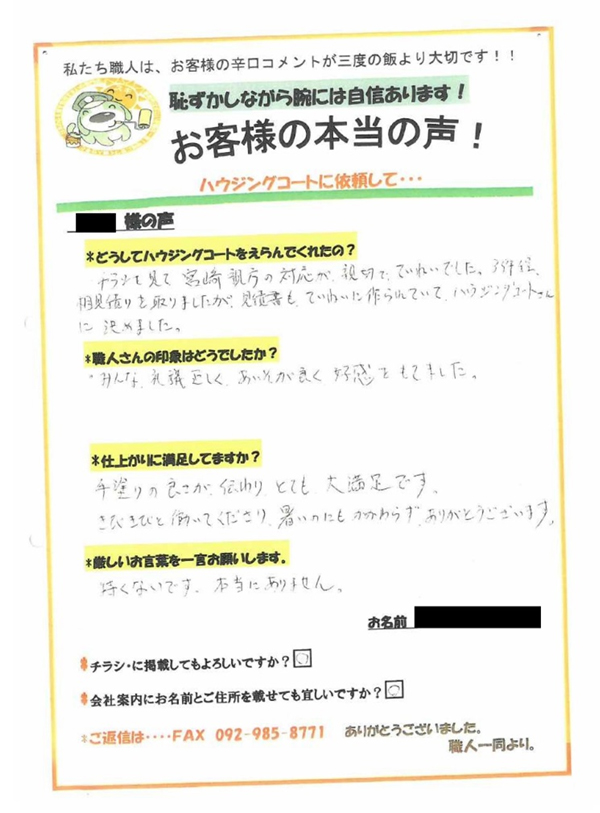 私たち職人は、お客様の辛口コメントが三度の飯より大切です！！
恥ずかしながら腕には自信あります！
お客様の本当の声！
ハウジングコートに依頼して・・・
様の声
*どうしてハウジングコートをえらんでくれたの？
チラシを見て 宮崎親方の対応が、親切で、ていねいでした。3件位、
相見積りを取りましたが、見積書も、ていねいに作られていて、ハウジングコートさん
に 決めました。
*職人さんの印象はどうでしたか？
・みんな、礼議正しく、あいそが良く 好感をもてました。
*仕上がりに満足してますか？
手塗りの良さが、伝わり、とても、大満足です。
きびきびと働いてくださり、暑いのにもかかわらず、ありがとうございます。
*厳しいお言葉を一言お願いします。
特くないです、本当にありません。
お名前
チラシ・に掲載してもよろしいですか？
会社案内にお名前とご住所を載せても宜しいですか？
*ご返信は・・・・FAX 092-985-8771
ありがとうございました。
職人一同より。